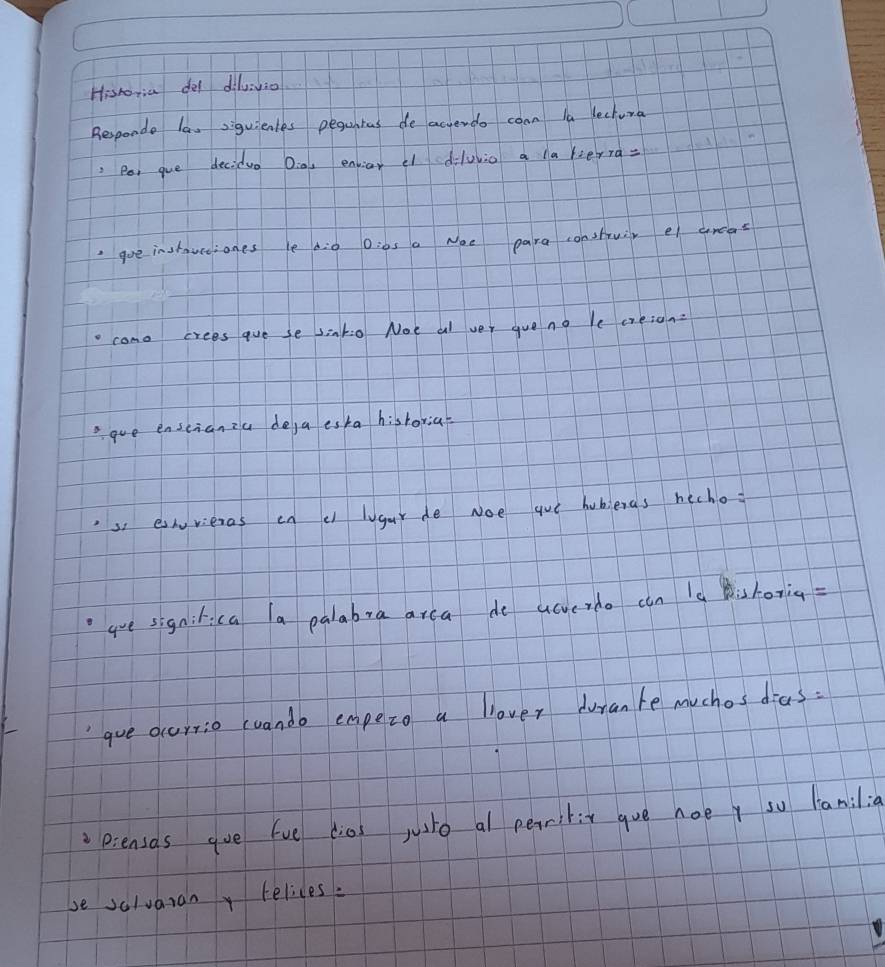 Historia del diluivio
Responde las siguientes peguntas de acuerdo conn la lectura
• Por que deciduo Dios enviar el diluvio a la tierra=
• que instrucciones le dio Dios a Noe para construir el arcas
• como crees que se sintio Noe al ver que no le creian=
• que enseianza deja esta historia=
• si estuvieras en el lugar de Noe que hubieras hecho=
• que significa la palabra arca de acuerdo con la historia=
• que ocurrio cuando empezo a llover durante muchos dias=
• Piensas que fue dios justo al permitir que noe y su familia
se salvaran y felices=